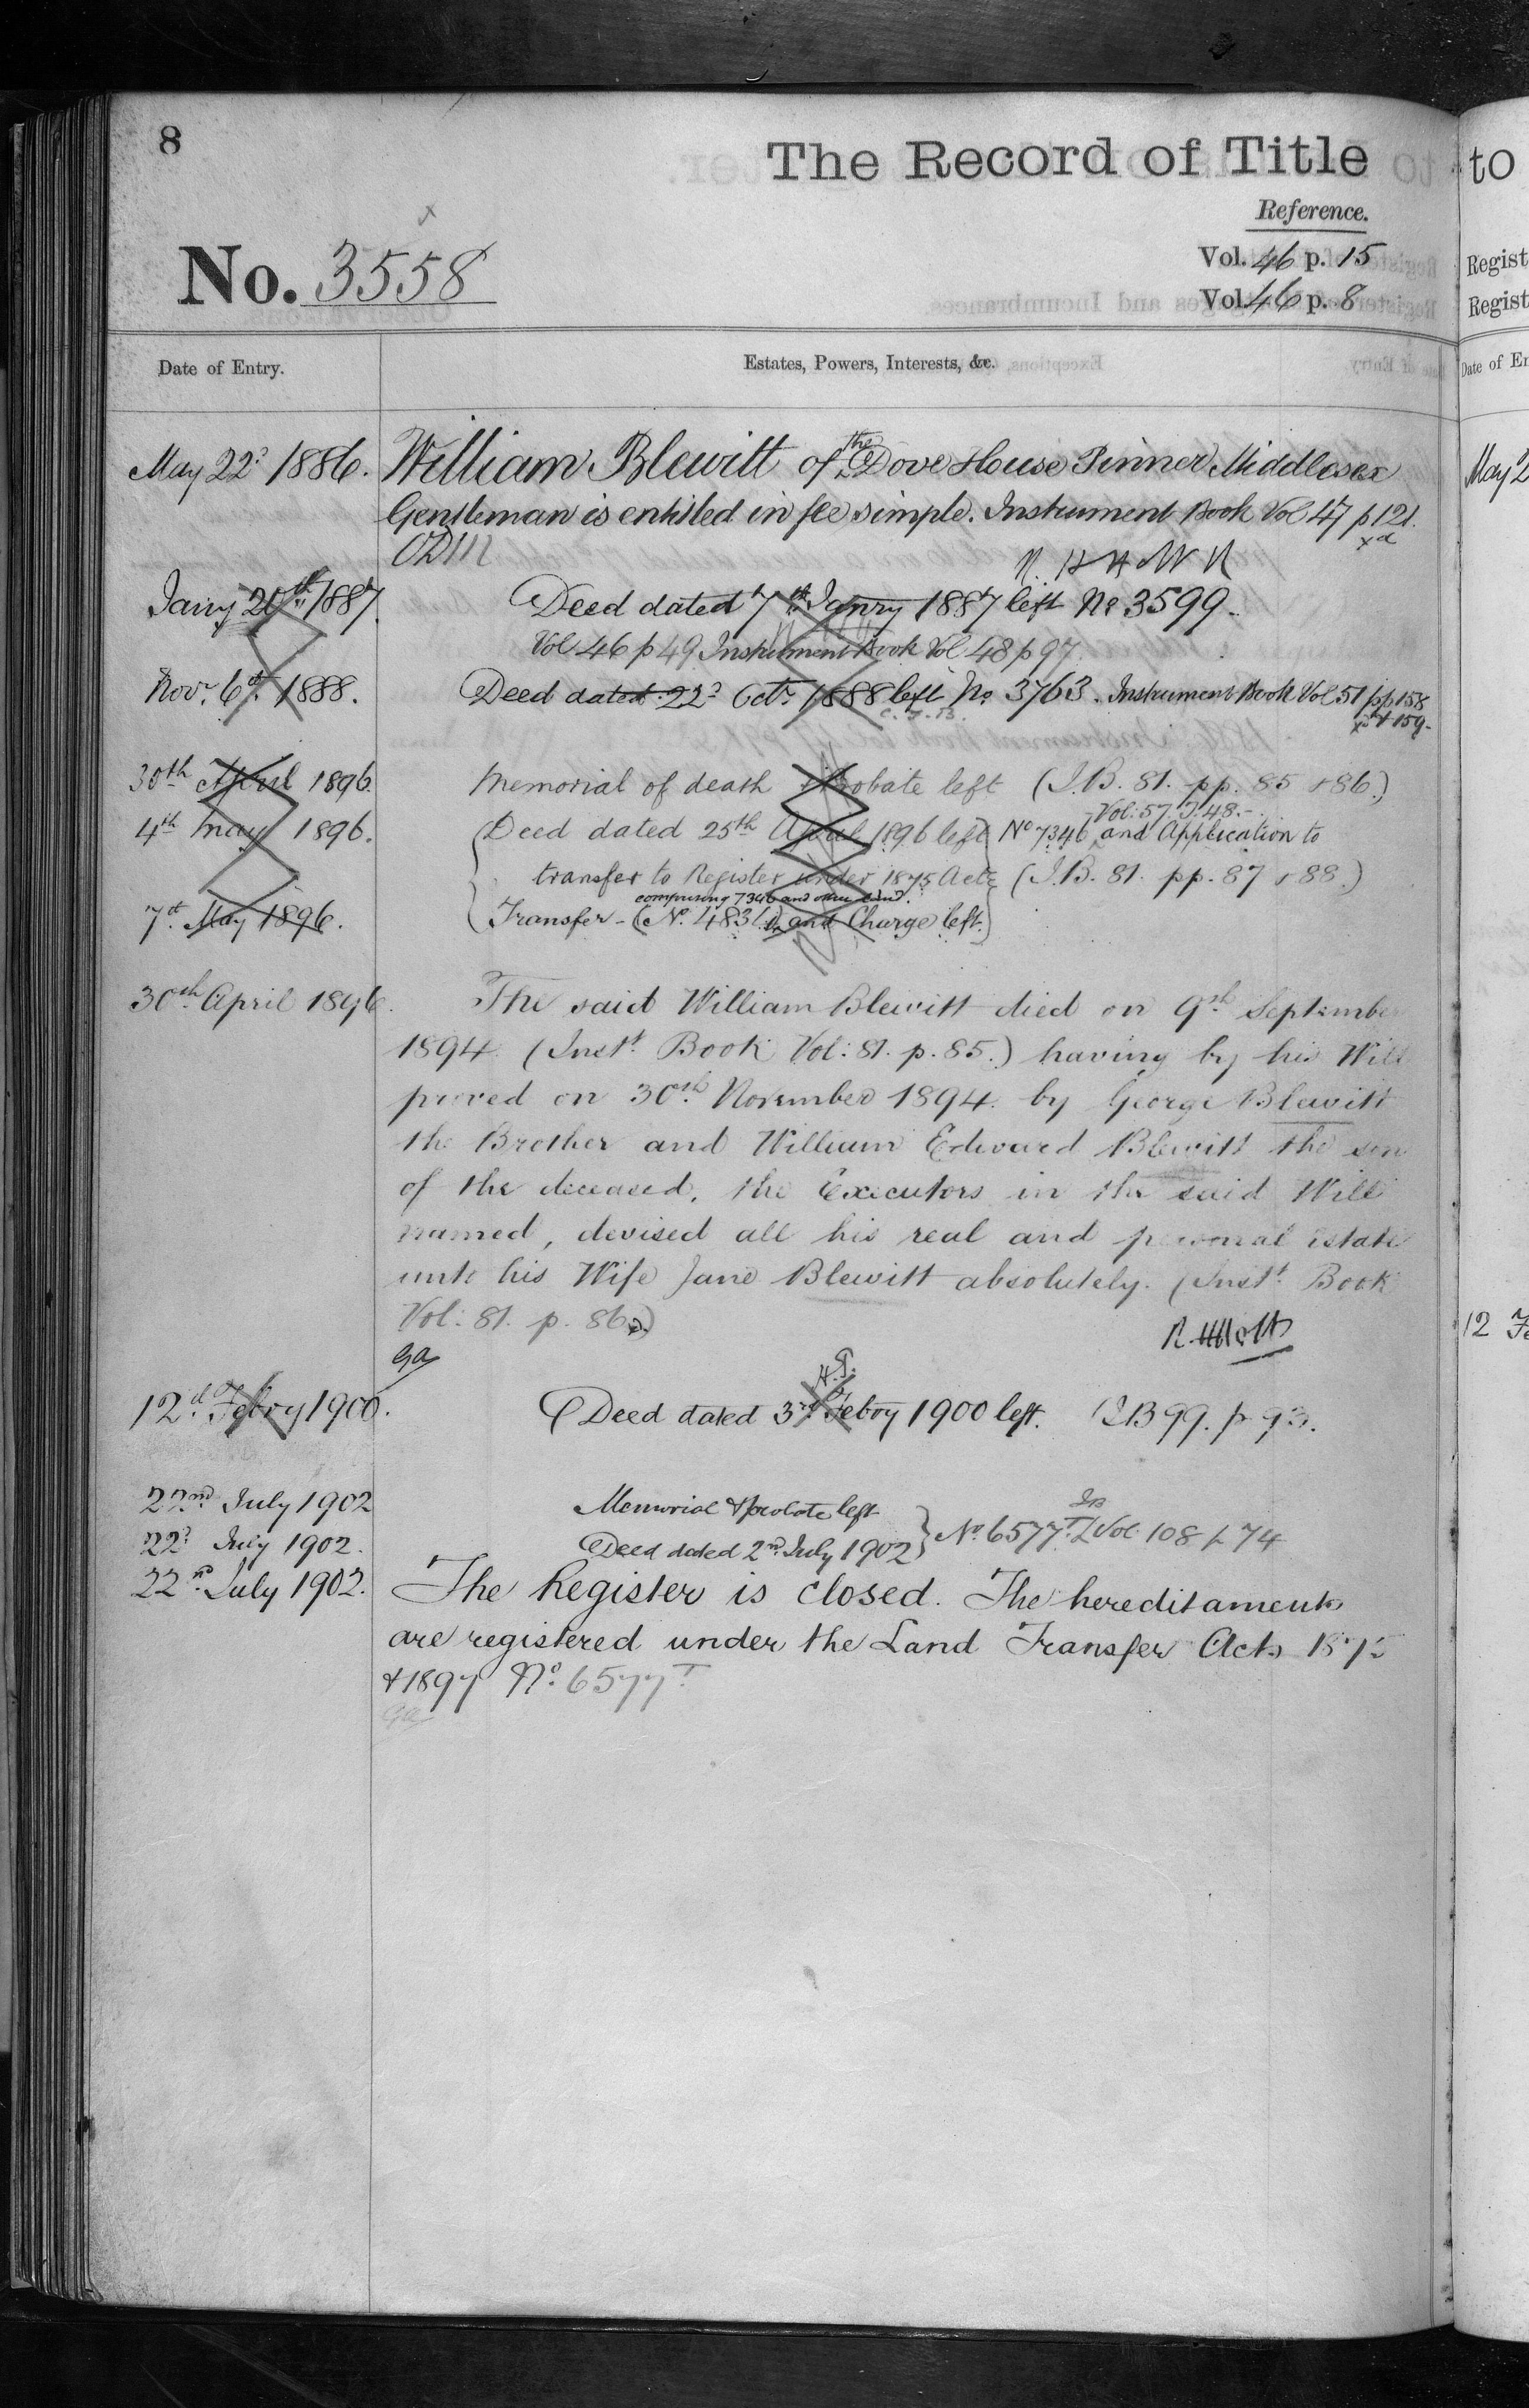 8
The Record of Title
Reference.
No. 3558
Vol. 46 p. 15
Vol. 46 p. 8
Date of Entry.
Estates, Powers, Interests, &c.
May 22d 1886. William Blewitt of the Dove House Pinner Middlesex
Gentleman is entitled in fee simple. Instrument Book Vol 47 p 121.
Janry 20th 1887. Deed dated 7th Janry 1887 left No 3599.
Vol 46 p 49 Instrument Book Vol 48 p 97.
Novr. 6th 1888. Deed dated 22d Octr 1888 left No. 3763. Instrument Book Vol 51 pp 158
& 159.
30th April 1896. Memorial of death & Probate left (I.B. 81. pp. 85 & 86.)
Vol: 57
4th May 1896. Deed dated 25th April 1896 left No 7346 and Application to
transfer to Register under 1875 Act (I.B. 81. pp. 87 & 88.)
comprising 7346 and other land.
7th May 1896. Transfer - (No. 4831) and Charge left.
30th April 1896. The said William Blewitt died on 9th September
1894. (Instt. Book Vol: 81. p. 85.) having by his Will
proved on 30th November 1894. by George Blewitt
the Brother and William Edward Blewitt the son
of the deceased, the Executors in the said Will
named, devised all his real and personal estate
unto his Wife Jane Blewitt absolutely. (Instt. Book
Vol: 81. p. 86.)
12th Febry 1900. Deed dated 3rd Febry 1900 left. IB 99. p 93.
22nd July 1902 Memorial & probate left
IB
22d July 1902. Deed dated 2nd July 1902 No. 6577T. Vol. 108 p 74
22nd July 1902. The Register is closed. The hereditaments
are registered under the Land Transfer Acts 1875
& 1897 No. 6577T
to
Regist
Regist
Date of En
May 2
12 Fe